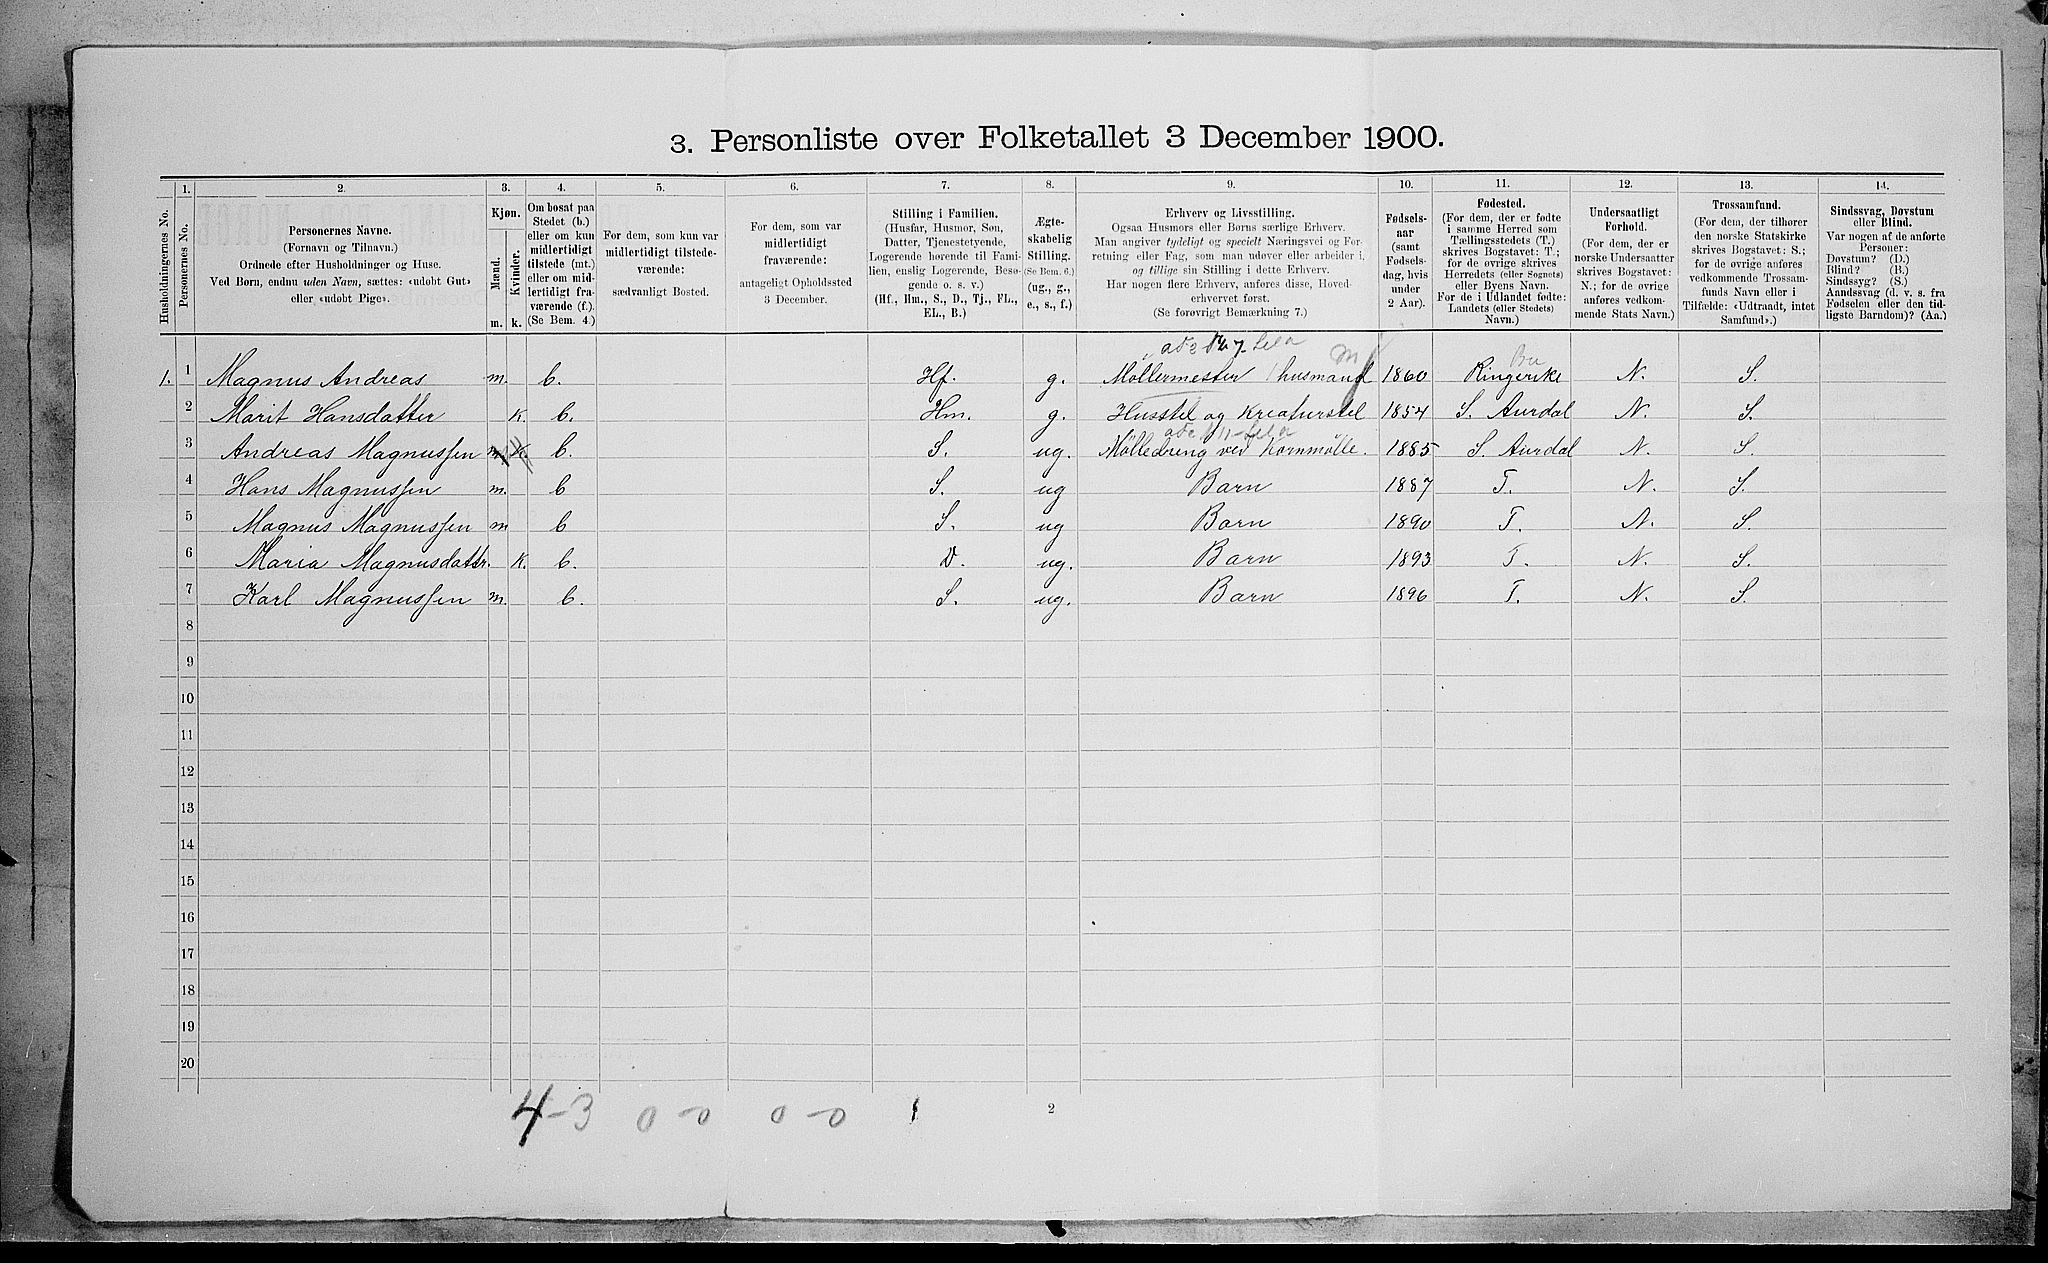 3. Personliste over Folketallet 3 December 1900.
1. 2. 3. 4. 5. 6. 7. 8. 9. 10. 11. 12. 13. 14.
Husholdningernes No.
Personernes No.
Personernes Navne.
(Fornavn og Tilnavn.)
Ordnede efter Husholdninger og Huse.
Ved Børn, endnu uden Navn, sættes: «udobt Gut»
eller «udobt Pige».
Kjøn.
Mænd.
Kvinder.
m. k.
Om bosat paa
Stedet (b.)
eller om kun
midlertidigt
tilstede (mt.)
eller om mid-
lertidigt fra-
værende (f.).
(Se Bem. 4.)
For dem, som kun var
midlertidigt tilstede-
værende:
sædvanligt Bosted.
For dem, som var
midlertidigt
fraværende:
antageligt Opholdssted
3 December.
Stilling i Familien.
(Husfar, Husmor, Søn,
Datter, Tjenestetyende,
Logerende hørende til Fami-
lien, enslig Logerende, Besø-
gende o. s. v.)
(Hf., Hm., S., D., Tj., FL.,
EL., B.)
Ægte-
skabelig
Stilling.
(Se Bem. 6.)
(ug., g.,
e., s., f.)
Erhverv og Livsstilling.
Ogsaa Husmors eller Børns særlige Erhverv.
Man angiver tydeligt og specielt Næringsvei og For-
retning eller Fag, som man udøver eller arbeider i,
og tillige sin Stilling i dette Erhverv.
Har nogen flere Erhverv, anføres disse, Hoved-
erhvervet først.
(Se forøvrigt Bemærkning 7.)
Fødsels-
aar
(samt
Fødsels-
dag, hvis
under
2 Aar).
Fødested.
(For dem, der er fødte
i samme Herred som
Tællingsstedets (T.)
skrives Bogstavet: T.;
for de øvrige skrives
Herredets (eller Sognets)
eller Byens Navn.
For de i Udlandet fødte:
Landets (eller Stedets)
Navn.)
Undersaatligt
Forhold.
(For dem, der er
norske Undersaatter
skrives Bogstavet:
N.; for de øvrige
anføres vedkom-
mende Stats Navn.)
Trossamfund.
(For dem, der tilhører
den norske Statskirke
skrives Bogstavet: S.;
for de øvrige anføres
vedkommende Trossam-
funds Navn eller i
Tilfælde: «Udtraadt, intet
Samfund».)
Sindssvag, Døvstum
eller Blind.
Var nogen af de anførte
Personer:
Døvstum? (D.)
Blind? (B.)
Sindssyg? (S.)
Aandssvag (d. v. s. fra
Fødselen eller den tid-
ligste Barndom)? (Aa.)
1. 1 Magnus Andreas m. b. Hf. g. Møllermester husmand 1860 Ringerike N. S.
2 Marit Hansdatter K. b. Hm. g. Husstel og Kreaturstel 1854 S. Aurdal N. S.
3 Andreas Magnussen b. S. ug. ved Kornmølle. 1885 S. Aurdal N. S.
4 Hans Magnussen m. b S. ug Barn 1887 T. N. S.
5 Magnus Magnussen m b S. ug Barn 1890 T. N. S.
6 Maria Magnusdatter. K. b. D. ug. Barn 1893 T. N. S.
7 Karl Magnussen m. b. S. ug. Barn 1896 T. N. S.
8
9
10
11
12
13
14
15
16
17
18
19
20
4-3 0-0 0-0 1 2